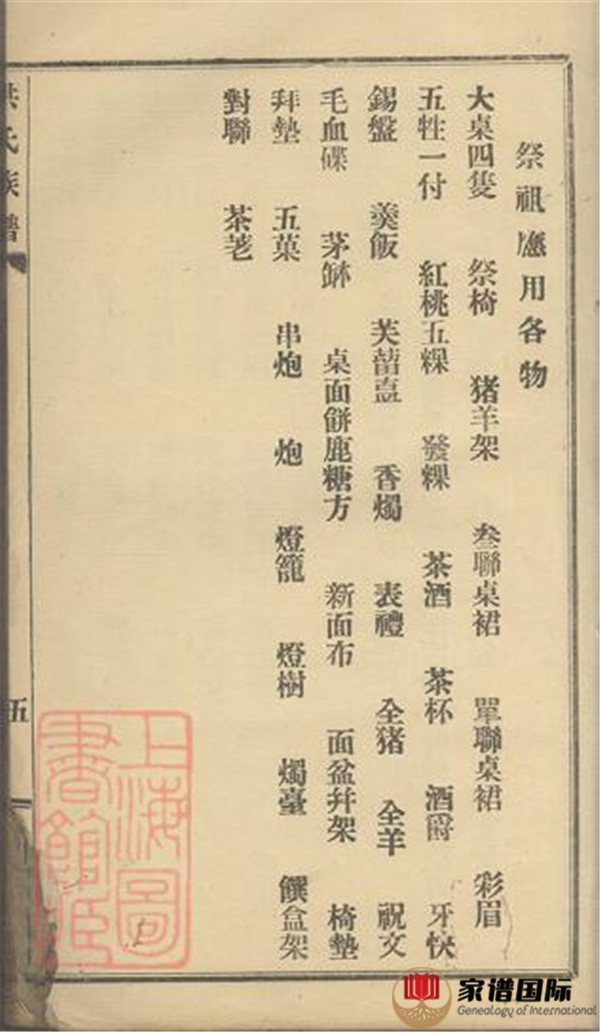 祭祖應用各物
大桌四隻 祭椅 猪羊架 叁聯桌裙 單聯桌裙 彩眉
五牲一付 紅桃五粿 發粿 茶酒 茶杯 酒爵 牙快
錫盤 羮飯 芙蒥盍 香燭 表禮 全猪 全羊 祝文
毛血碟 茅缽 桌面餅鹿糖方 新面布 面盆幷架 椅墊
拜墊 五菓 串炮 炮 燈籠 燈樹 燭臺 饌盒架
對聯 茶荖
洪氏族譜
五
上海圖書館藏
家谱国际
Genealogy of International